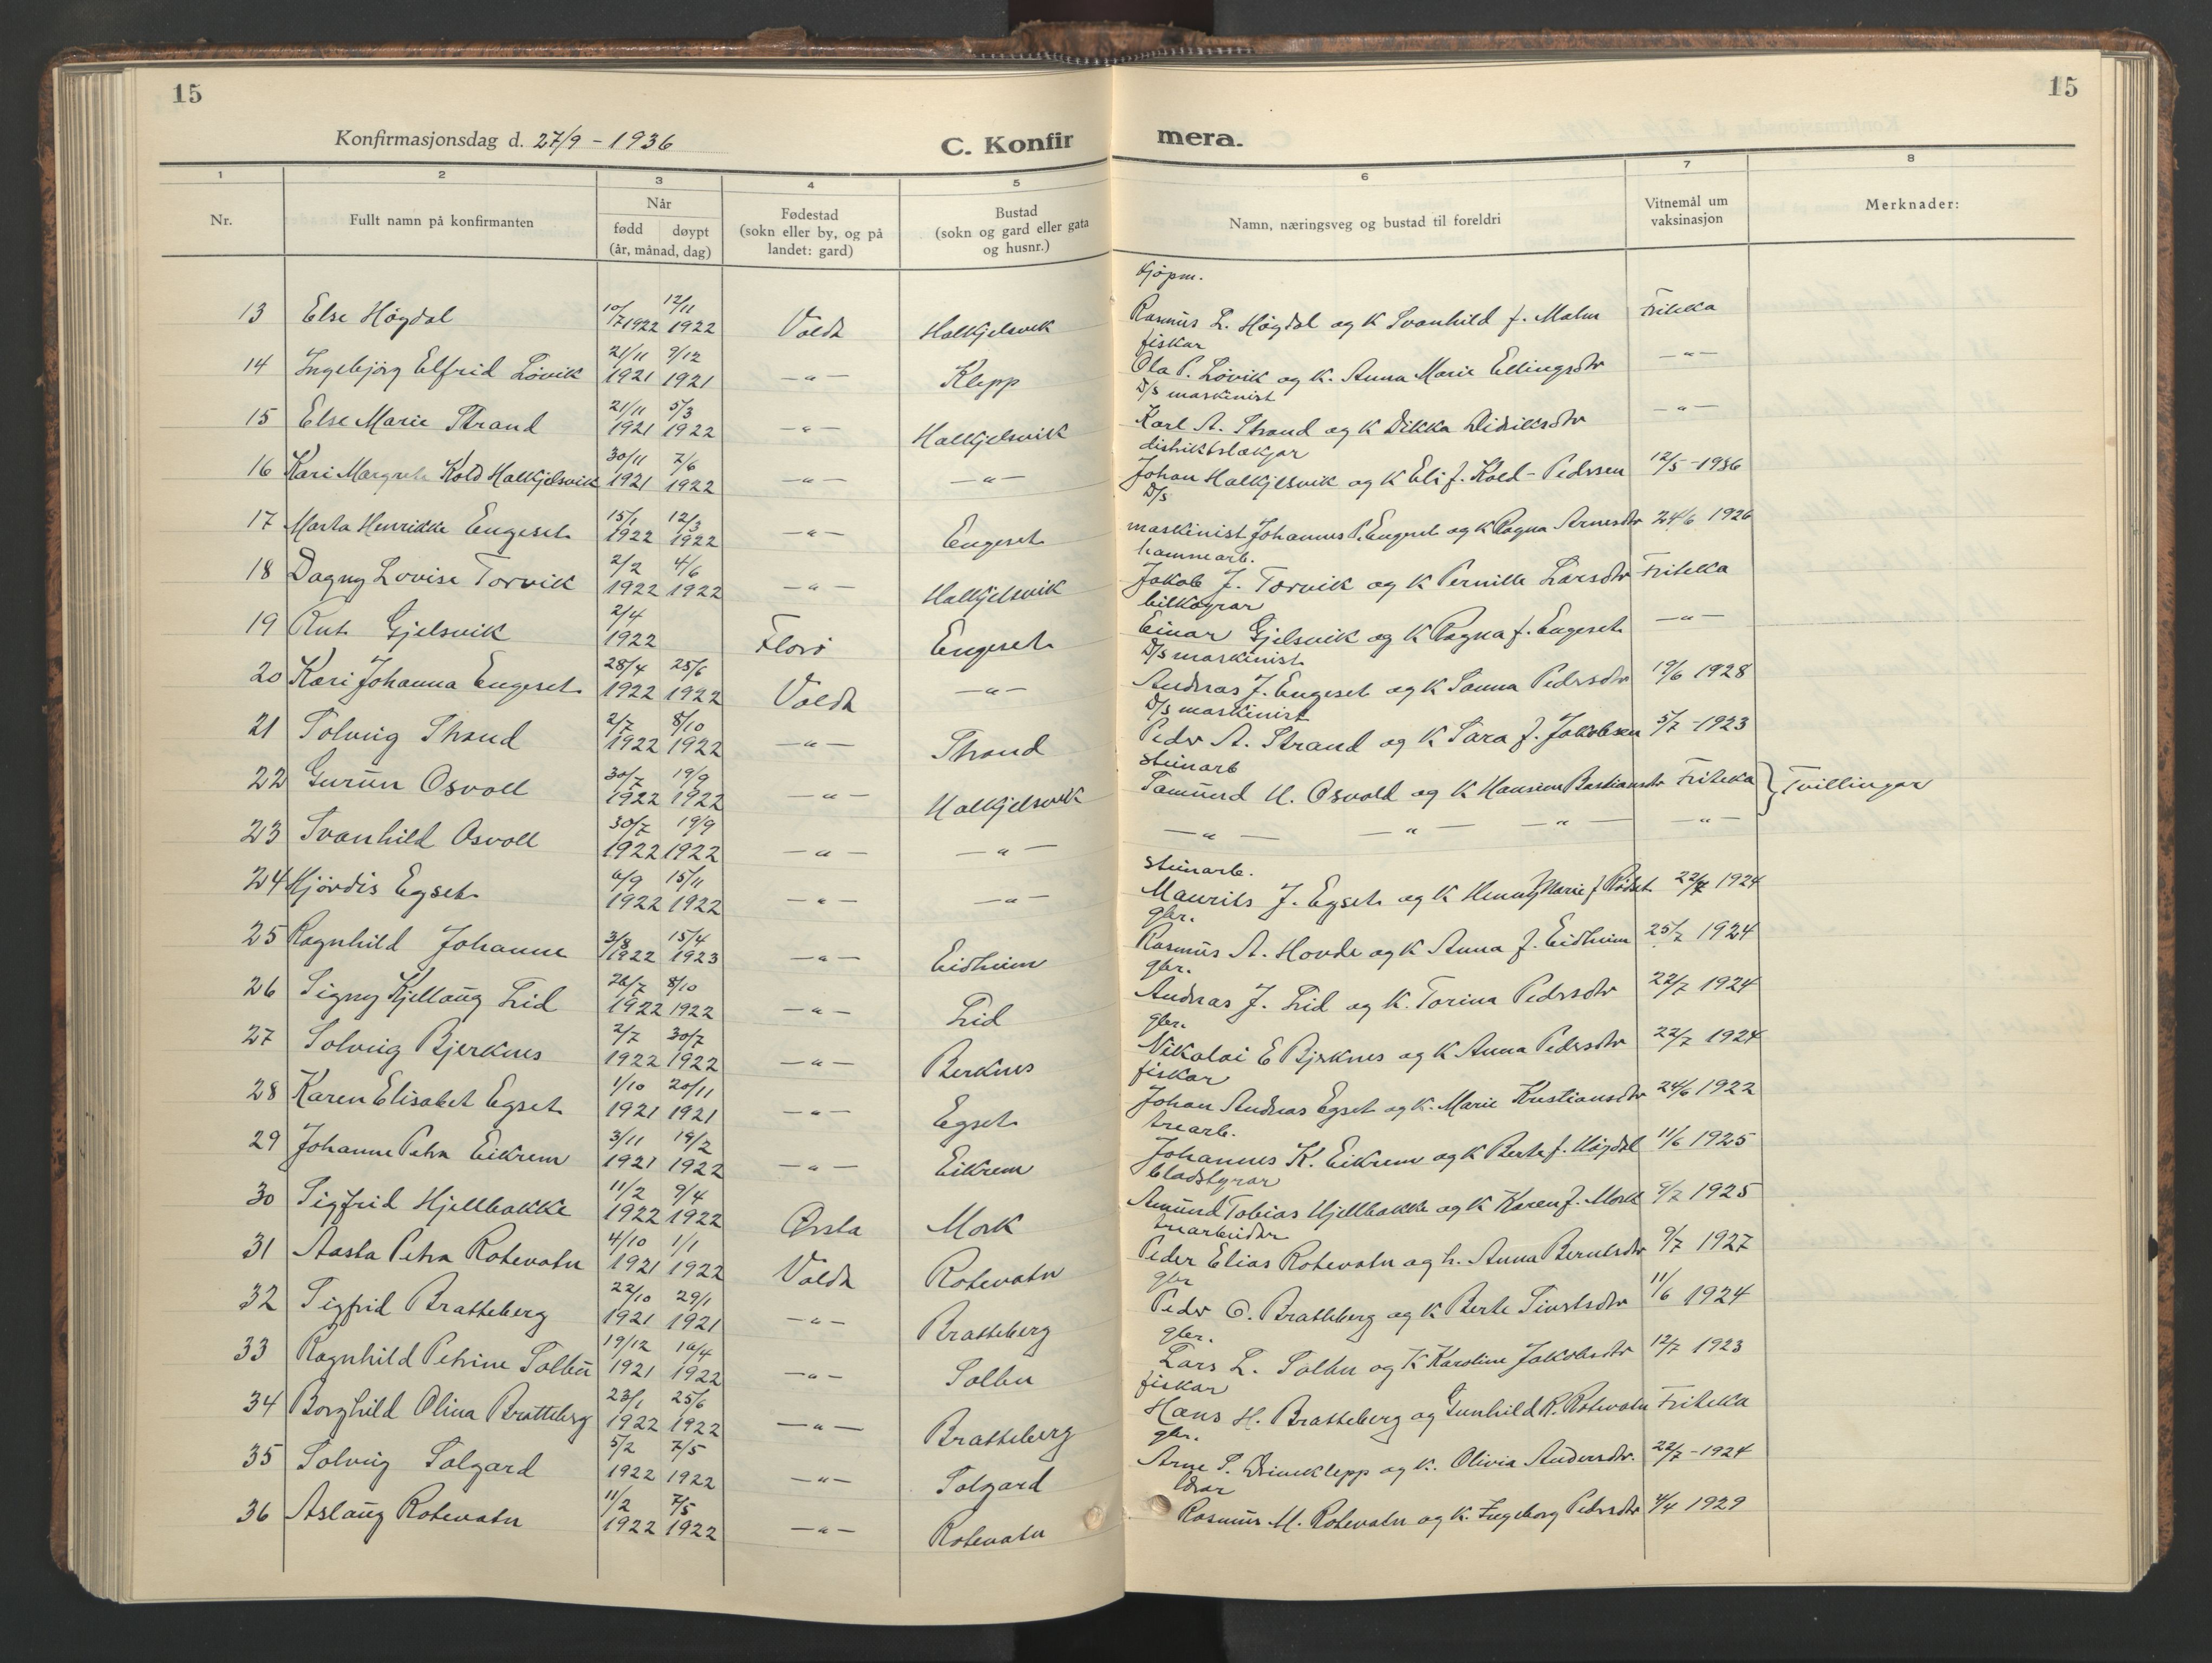 15
15
Konfirmasjonsdag d. 27/9 - 1936
C. Konfirmera.
1 2 3 4 5 6 7 8
Nr. Fullt namn på konfirmanten Når fødd døypt (år, månad, dag) Fødestad (sokn eller by, og på landet: gard) Bustad (sokn og gard eller gata og husnr.) Namn, næringsveg og bustad til foreldri Vitnemål um vaksinasjon Merknader:
kjøpm.
13 Else Høgdal 10/7 1922 12/11 1922 Volda Halkjelsvik Rasmus L. Høgdal og K Svanhild f. Malm Friteka
fiskar
14 Ingebjørg Elfrid Løvik 21/11 1921 9/12 1921 —"— Klepp Ola P. Løvik og K. Anna Marie Ellingsdtr —"—
D/s maskinist
15 Else Marie Strand 21/11 1921 5/3 1922 —"— Halkjelsvik Karl A. Strand og K Dikka Didriksdtr —"—
distriktslækjar
16 Kari Margrete Kold Halkjelsvik 30/11 1921 7/6 1922 —"— —"— Johan Halkjelsvik og K Eli f. Kold-Pedersen 12/5 -1936
D/s
17 Marta Henrikke Engeset 15/1 1922 12/3 1922 —"— Engeset maskinist Johannes P. Engeset og K Ragna Arnesdtr 24/6 1926
hamnearb.
18 Dagny Lovise Torvik 2/2 1922 4/6 1922 —"— Halkjelsvik Jakob J. Torvik og K Pernille Larsdtr Friteka
bilkøyrar
19 Rut Gjelsvik 2/4 1922 Florø Engeset Einar Gjelsvik og K Ragna f. Engeset —"—
D/s maskinist
20 Kari Johanna Engeset 28/4 1922 25/6 1922 Volda —"— Andreas J. Engeset og K Sanna Pedersdtr 19/6 1928
D/s maskinist
21 Solveig Strand 2/7 1922 8/10 1922 —"— Strand Peder A. Strand og K Sara f. Jakobsen 5/7 -1923
steinarb
22 Gurun Osvoll 30/7 1922 19/9 1922 —"— Halkjelsvik Samund H. Osvold og K Hansine Bastiansdtr Friteka } Tvillingar
23 Svanhild Osvoll 30/7 1922 19/9 1922 —"— —"— —"— —"— —"— —"—
steinarb.
24 Hjördis Egset 6/9 1922 15/11 1922 —"— —"— Maurits J. Egset og K Henny Marie f Rødset 22/7 1924
gbr.
25 Ragnhild Johanne 3/8 1922 15/4 1923 —"— Eidheim Rasmus A. Hovde og K Anna f. Eidheim 25/7 1924
gbr.
26 Signy Kjellaug Lid 26/7 1922 8/10 1922 —"— Lid Andreas J. Lid og K. Torina Pedersdtr 22/7 1924
gbr.
27 Solveig Bjerknes 2/7 1922 30/7 1922 —"— Berknes Nikolai E Bjerknes og K Anna Pedersdtr 22/7 1924
fiskar
28 Karen Elisabet Egset 1/10 1921 20/11 1921 —"— Egset Johan Andreas Egset og K. Marie Kristiansdtr 24/6 1922
trearb.
29 Johanne Petra Eikrem 3/11 1921 19/2 1922 —"— Eikrem Johannes K. Eikrem og K Berte f. Høgdal 11/6 1925
bladstyrar
30 Sigfrid Hjellbakke 11/2 1922 9/4 1922 Ørsta Mork Amund Tobias Hjellbakke og K Karen f. Mork 9/7 1925
trearbeider
31 Aasta Petra Rotevatn 4/10 1921 1/1 1922 Volda Rotevatn Peder Elias Rotevatn og h. Anna Berntsdtr 9/7 1927
gbr
32 Sigfrid Bratteberg 22/10 1921 29/1 1921 —"— Bratteberg Peder O. Bratteberg og K Berte Sivertsdtr 11/6 1924
gbr.
33 Ragnhild Petrine Solbu 19/12 1921 16/4 1922 —"— Solbu Lars L. Solbu og K Karoline Jakobsdtr 12/7 1923
fiskar
34 Borghild Olina Bratteberg 23/1 1922 25/6 1922 —"— Bratteberg Hans H. Bratteberg og Gunhild R. Rotevatn Friteka
gbr.
35 Solveig Solgard 5/2 1922 7/5 1922 —"— Solgard Arne S. Driveklepp og K. Olivia Andersdtr. 22/7 -1924
36 Aslaug Rotevatn 11/2 1922 7/5 1922 —"— Rotevatn Rasmus M. Rotevatn og K. Ingeborg Pedersdtr 4/4 1929